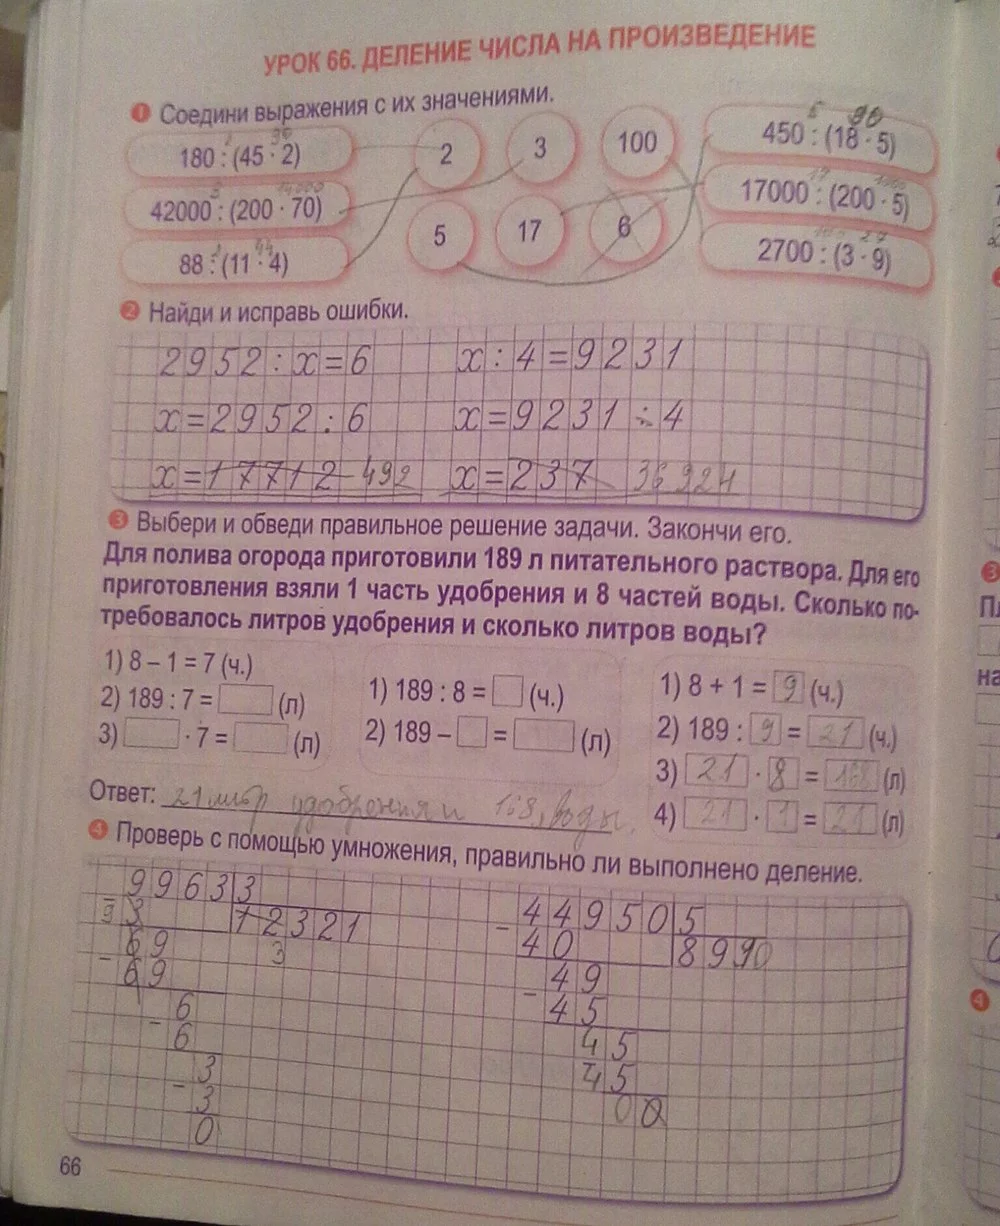 УРОК 66. ДЕЛЕНИЕ ЧИСЛА НА ПРОИЗВЕДЕНИЕ
1 Соедини выражения с их значениями.
2 90
180 : (45 · 2)
3 14000
42000 : (200 · 70)
2 44
88 : (11 · 4)
2
3
100
5
17
6
5 90
450 : (18 · 5)
17 1000
17000 : (200 · 5)
100 27
2700 : (3 · 9)
2 Найди и исправь ошибки.
2952 : x = 6
x = 2952 : 6
x = 17712 492
x : 4 = 9231
x = 9231 : 4
x = 237 36924
3 Выбери и обведи правильное решение задачи. Закончи его.
Для полива огорода приготовили 189 л питательного раствора. Для его
приготовления взяли 1 часть удобрения и 8 частей воды. Сколько по-
требовалось литров удобрения и сколько литров воды?
1) 8 – 1 = 7 (ч.)
2) 189 : 7 = (л)
3) · 7 = (л)
1) 189 : 8 = (ч.)
2) 189 – = (л)
1) 8 + 1 = 9 (ч.)
2) 189 : 9 = 21 (ч.)
3) 21 · 8 = 168 (л)
4) 21 · 1 = 21 (л)
Ответ: 21 литр удобрения и 168 воды
4 Проверь с помощью умножения, правильно ли выполнено деление.
99633
3 12321
9 3
69
– 69
6
– 6
3
– 3
0
449505
– 40 8990
49
– 45
45
45
00
66
3
4